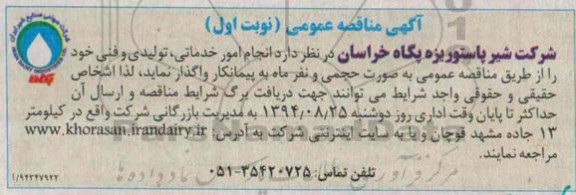 آگهی مناقصه عمومی (نوبت اول)
شرکت شیر پاستوریزه پگاه خراسان در نظر دارد انجام امور خدماتی، تولیدی و فنی خود
را از طریق مناقصه عمومی به صورت حجمی و نفر ماه به پیمانکار واگذار نماید، لذا اشخاص
حقیقی و حقوقی واجد شرایط می توانند جهت دریافت برگ شرایط مناقصه و ارسال آن
حداکثر تا پایان وقت اداری روز دوشنبه ۱۳۹۴٫۰۸٫۲۵ به مدیریت بازرگانی شرکت واقع در کیلومتر
۱۳ جاده مشهد قوچان و یا به سایت اینترنتی شرکت به آدرس: www.khorasan.irandairy.ir
مراجعه نمایند.
تلفن تماس: ۳۵۴۲۰۷۲۵-۰۵۱
۱/۹۴۲۴۷۹۲۲
شرکت سهامی صنایع شیر ایران
پگاه